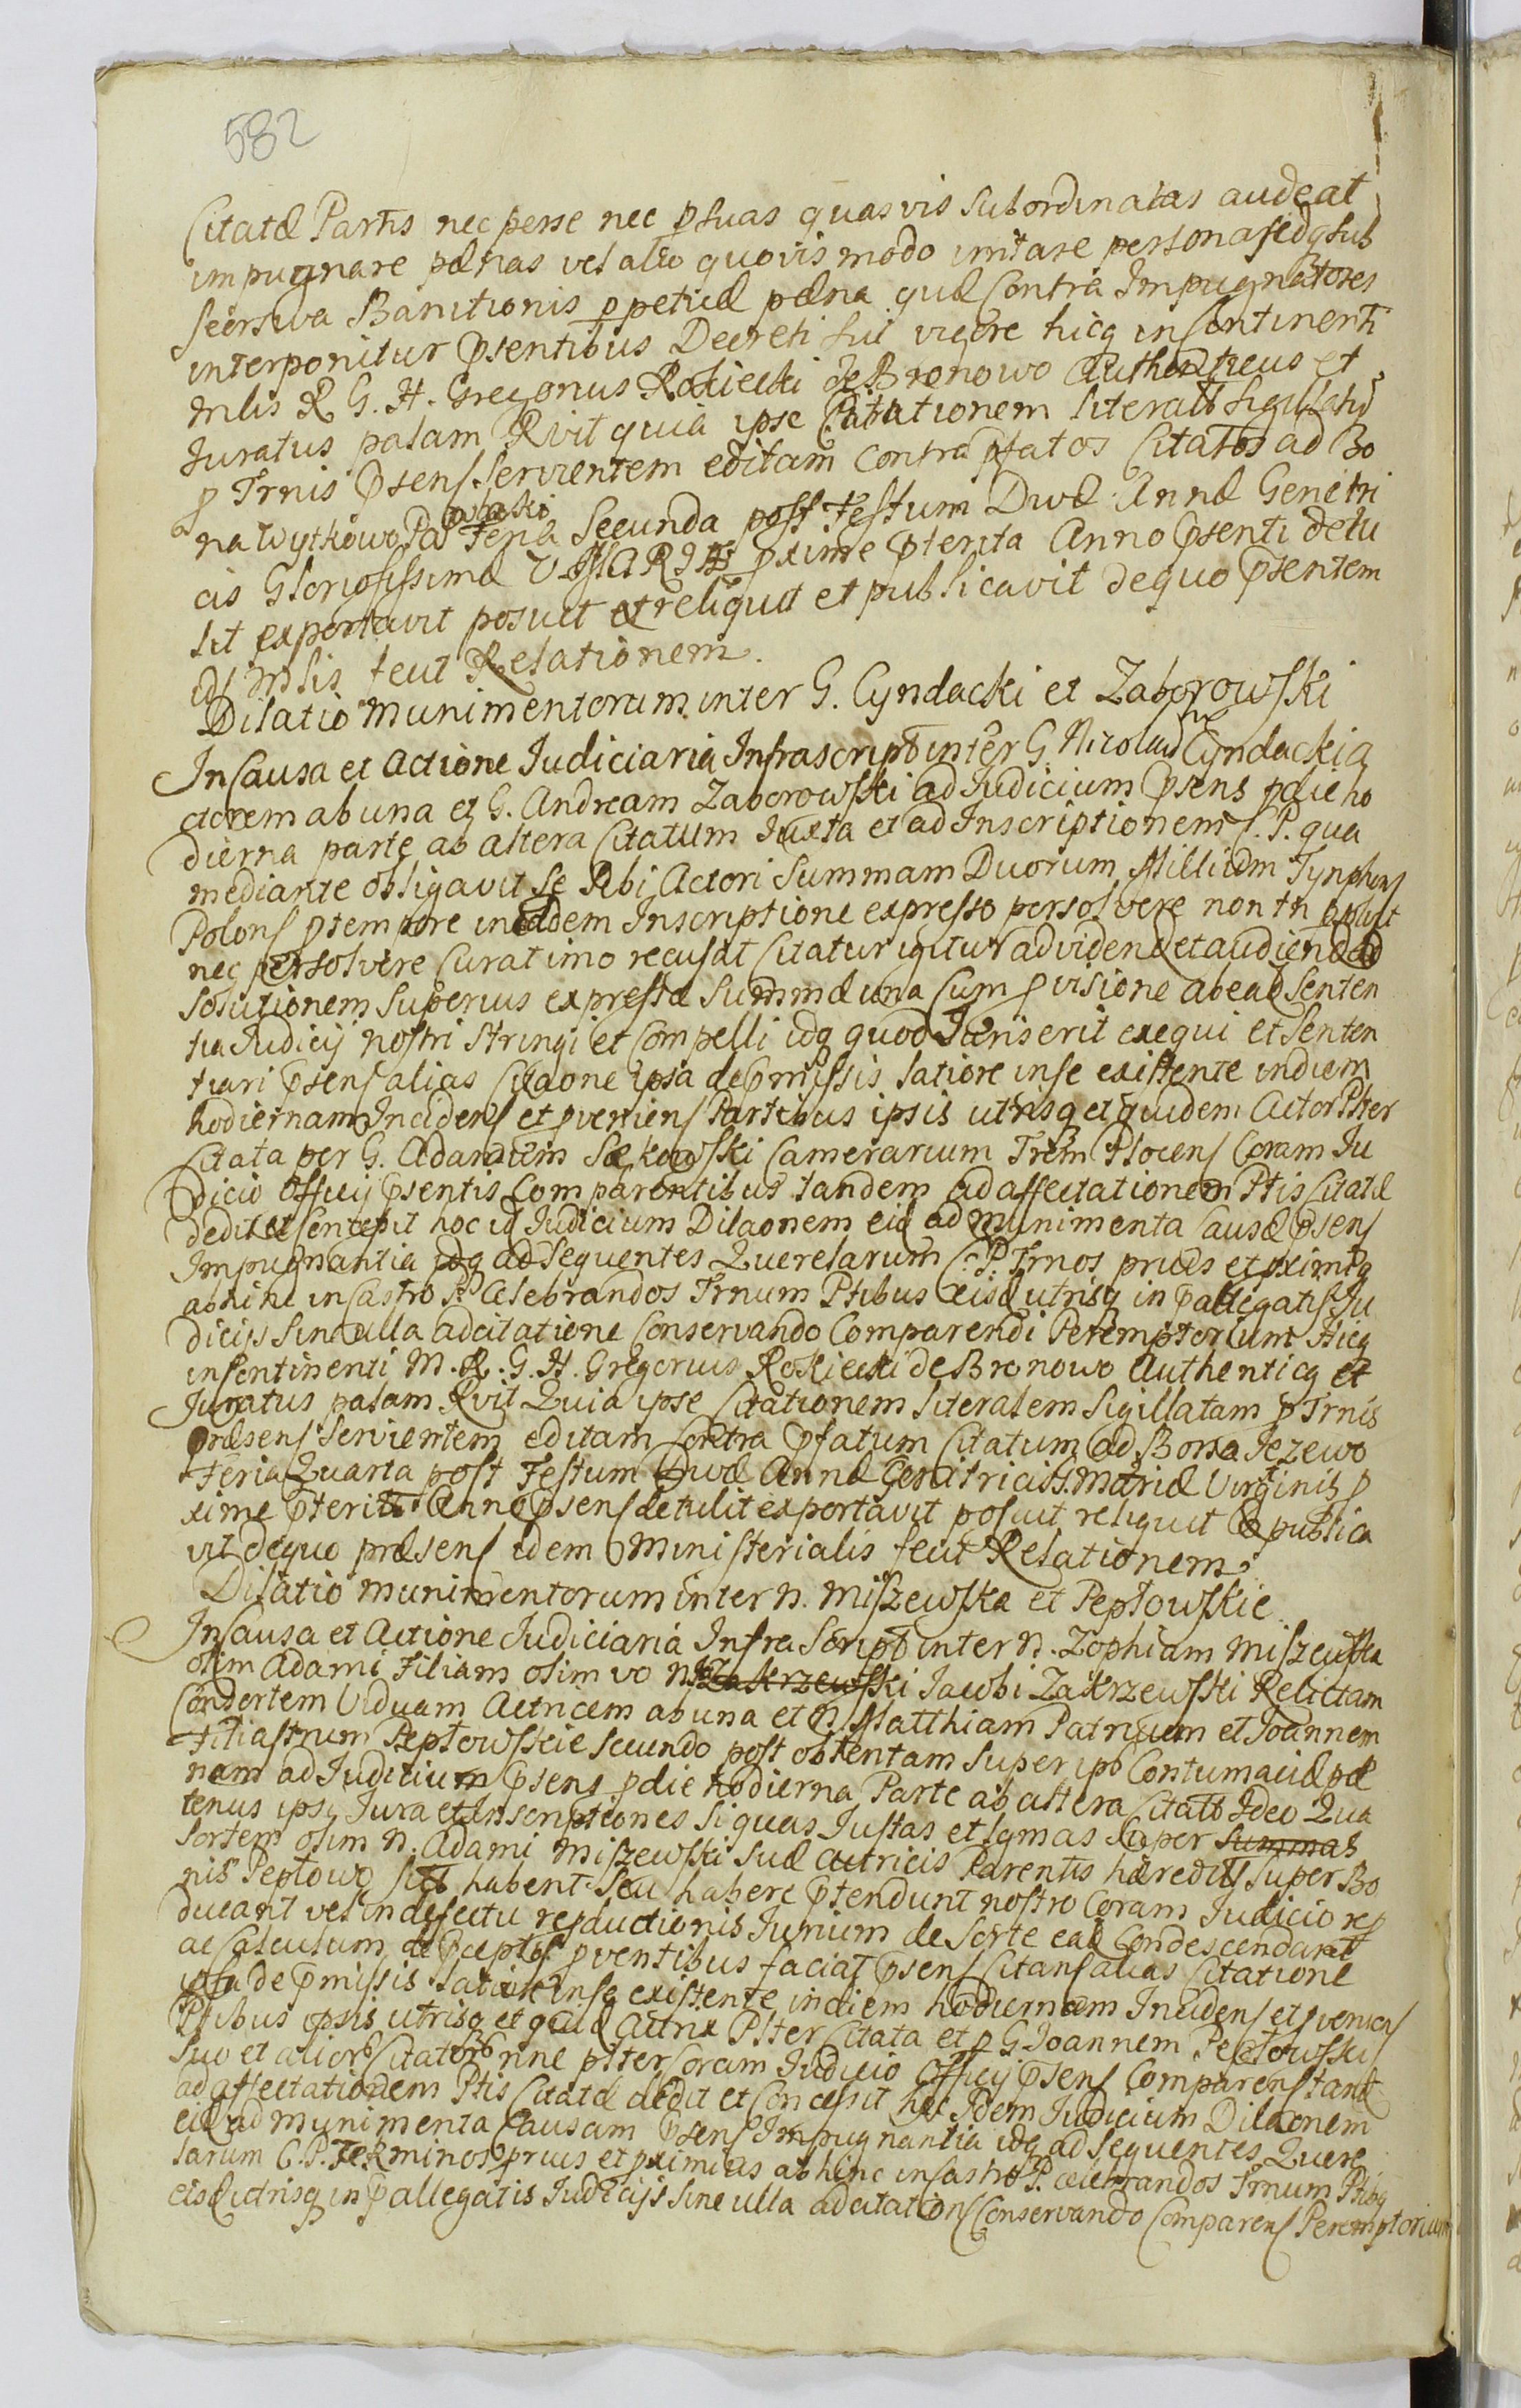 582
Citatæ Partis nec per se nec p suas quasvis subordinatas audeat
impugnare pænas vel alio quovis modo imitare personas idq sub
seorsiva Banitionis ppetuæ pæna quæ Contra Impugnatores
interponitur Psentibus Decreti sui vigore hicq in Continenti
Mlis R G. H. Gregorius Rokicki de Bronowo Authenticus et
Juratus palam Rvit quia ipse Citationem literalem sigillatā
p Trnis Psens servientem editam contra pfatos Citatos ad Bo
na Wytkowo Feria Secunda post Festum Divæ Annæ Genitri
cis Gloriosissimæ V MARIÆ pxime Pterita Anno Psenti detu
lit exportavit posuit et reliquit et publicavit de quo Psentem
id Mlis fecit Relationem.
Dilatio Munimentorum inter G. Cyndacki et Zaborowski
In Causa et Actione Judiciaria Infrascript inter G. Nicolaum Cyndacki a
ctorem ab una et G. Andream Zaborowski ad Judicium Psens p die ho
dierna parte ab altera Citatum Juxta et ad Inscriptionem C. P. qua
mediante obligavit se sibi Actori Summam Duorum Millium Tynphons
Polons p tempore in eadem Inscriptione expresso persolvere non tn solvit
nec persolvere curat imo recusat Citatur igitur ad vidend et audiend ad
solutionem superius expressæ Summæ una Cum pvisione ab ead Senten
tia Judicij nostri stringi et Compelli idq quod Juris erit exequi et Senten
tiari Psens alias Citaone ipsa de Pmissis latiore in se existente in diem
hodiernam Incidens et pveniens Partibus ipsis utrisq et quidem Actor Plter
Citata per G. Adamum Sækowski Camerarium Trem Plocens Coram Ju
dicio Officij Psentis Comparentibus tandem ad affectationem Ptis Citatæ
dedit et Concessit hoc id Judicium Dilaonem eid ad Munimenta Causæ Psens
Impugnantia idq ad sequentes Querelarum C. P. Trnos prius et pximios
abhinc in Castro P. Celebrandos Trnum Ptibus eisd utrisq in Pallegatis Ju
dicijs sine ulla adcitatione Conservando Comparendi Peremptorium Hicq
in Continenti M. R. G. H. Gregorius Rokicki de Bronowo Authenticq et
Juratus palam Rvit Quia ipse Citationem literalem Sigillatam p Trnis
præsens servientem editam Contra Pfatum Citatum ad Bona Jezewo
Feria Quarta post Festum Divæ Annæ Genitricis S. Mariæ Virginis p
xime Pterita Anno Psens detulit exportavit posuit reliquit et publica
vit de quo præsens idem Ministerialis fecit Relationem.
Dilatio Munimentorum inter N. Miszewska et Peptowskie
In Causa et Actione Judiciaria Infra Script inter N. Zophiam Miszewska
olim Adami Filiam olim vo N. Zakrzewski Jacobi Zakrzewski Relictam
Consortem Viduam Actricem ab una et N. Matthiam Patruum et Joannem
Filiastrum Peptowskie secundo post obtentam super ips Contumaciæ pæ
nam ad Judicium Psens p die hodierna Parte ab altera Citatos Ideo Qua
tenus ipsi Jura et Inscriptiones si quas Justas et lgmas super Summas
Sortem olim N. Adami Miszewski suæ Actricis Parentis hæreditis super Bo
nis Peptowo habent seu habere Ptendunt nostro Coram Judicio rep
ducant vel in defectu repductionis Jurium de Sorte ead Condescendant
ac Calculum de Pceptis pventibus faciat Psens Citans alias Citatione
ipsa de Pmissis latiore in se existente in diem hodiernam Incidens et pveniens
Ptibus ipsis utrisq et quid Actrix Plter Citata et p G Joannem Peptowski
suo et alior Citator nne plter Coram Judicio Officij Psens Comparens tand
ad affectationem Ptis Citatæ dedit et Concessit hoc Idem Judicium Dilaonem
eid ad munimenta Causam Psens Impugnantia idq ad sequentes Quere
larum C. P. Terminos prius et pximios abhinc in Castro P. celebrandos Trnum Ptibq
eisd utrisq in Pallegatis Judicijs sine ulla adcitations Conservando Comparens Peremptorium